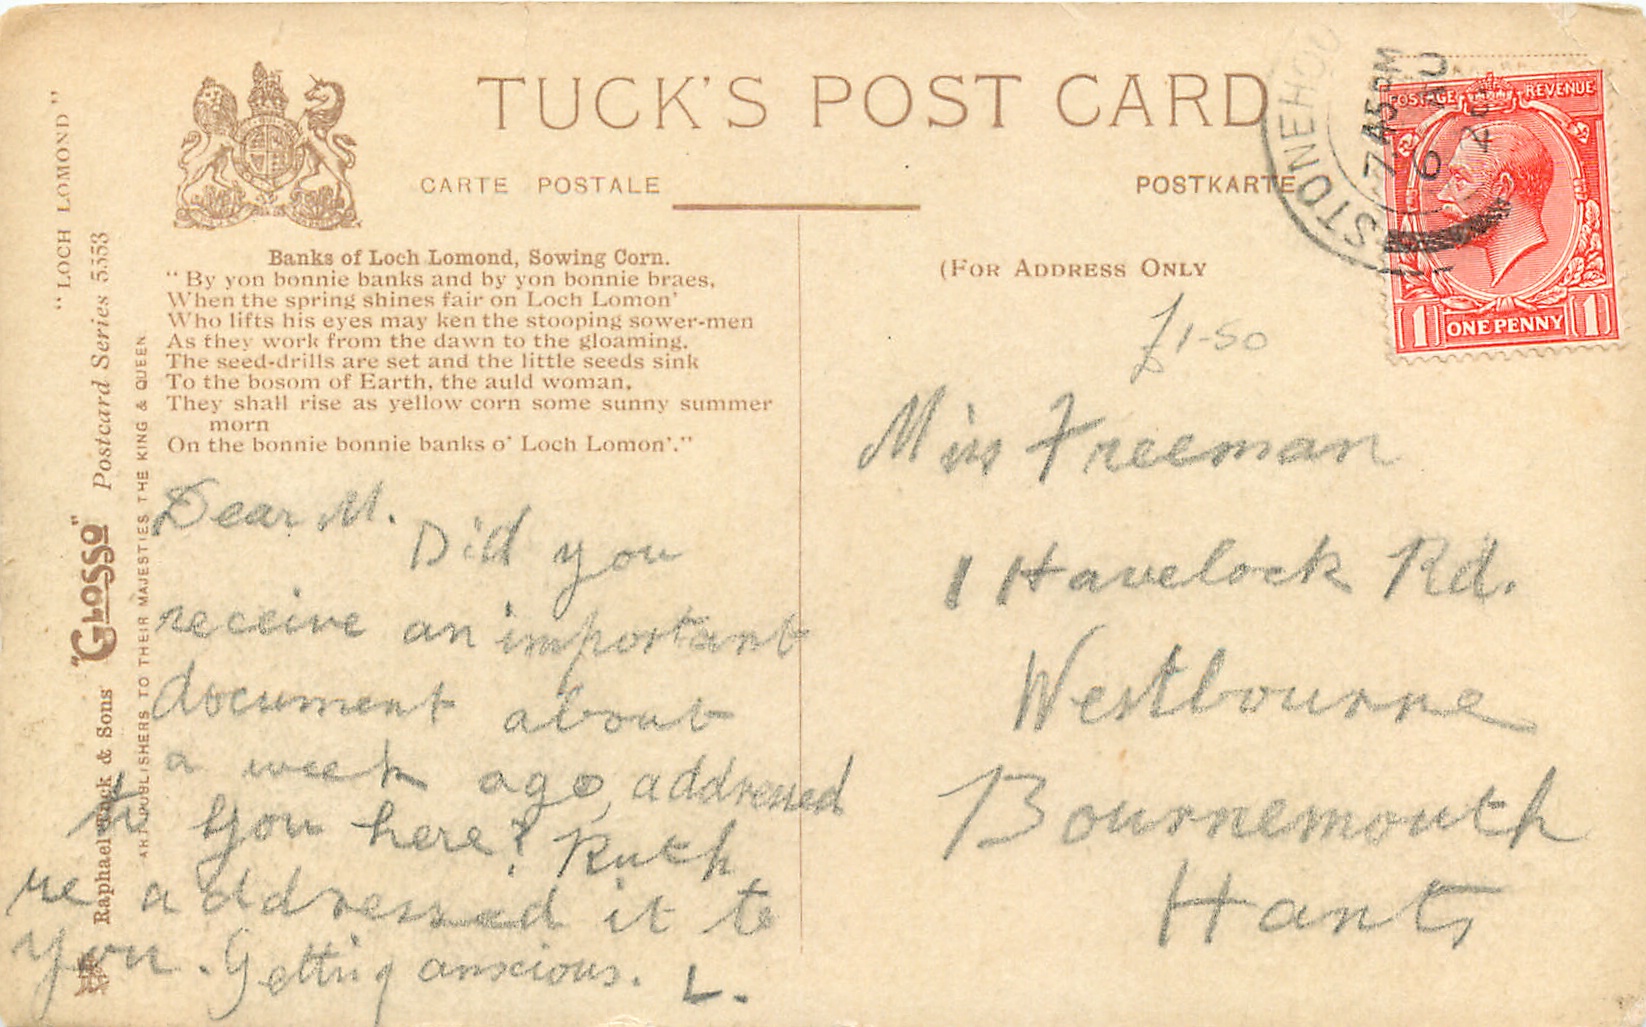 TUCK'S POST CARD
CARTE POSTALE
POSTKARTE
"LOCH LOMOND"
Raphael Tuck & Sons' "GLOSSO" Postcard Series 5553
ART PUBLISHERS TO THEIR MAJESTIES THE KING & QUEEN
Banks of Loch Lomond, Sowing Corn.
"By yon bonnie banks and by yon bonnie braes,
When the spring shines fair on Loch Lomon'
Who lifts his eyes may ken the stooping sower-men
As they work from the dawn to the gloaming.
The seed-drills are set and the little seeds sink
To the bosom of Earth, the auld woman,
They shall rise as yellow corn some sunny summer
morn
On the bonnie bonnie banks o' Loch Lomon'."
Dear M.
Did you
receive an important
document about
a week ago, addressed
to you here? Ruth
re addressed it to
you. Getting anscious.
L.
(FOR ADDRESS ONLY
£1-50
Miss Freeman
1 Havelock Rd.
Westbourne
Bournemouth
Hants
STONEHOU
7.45PM
6 AU
20
POSTAGE REVENUE
1 ONE PENNY 1